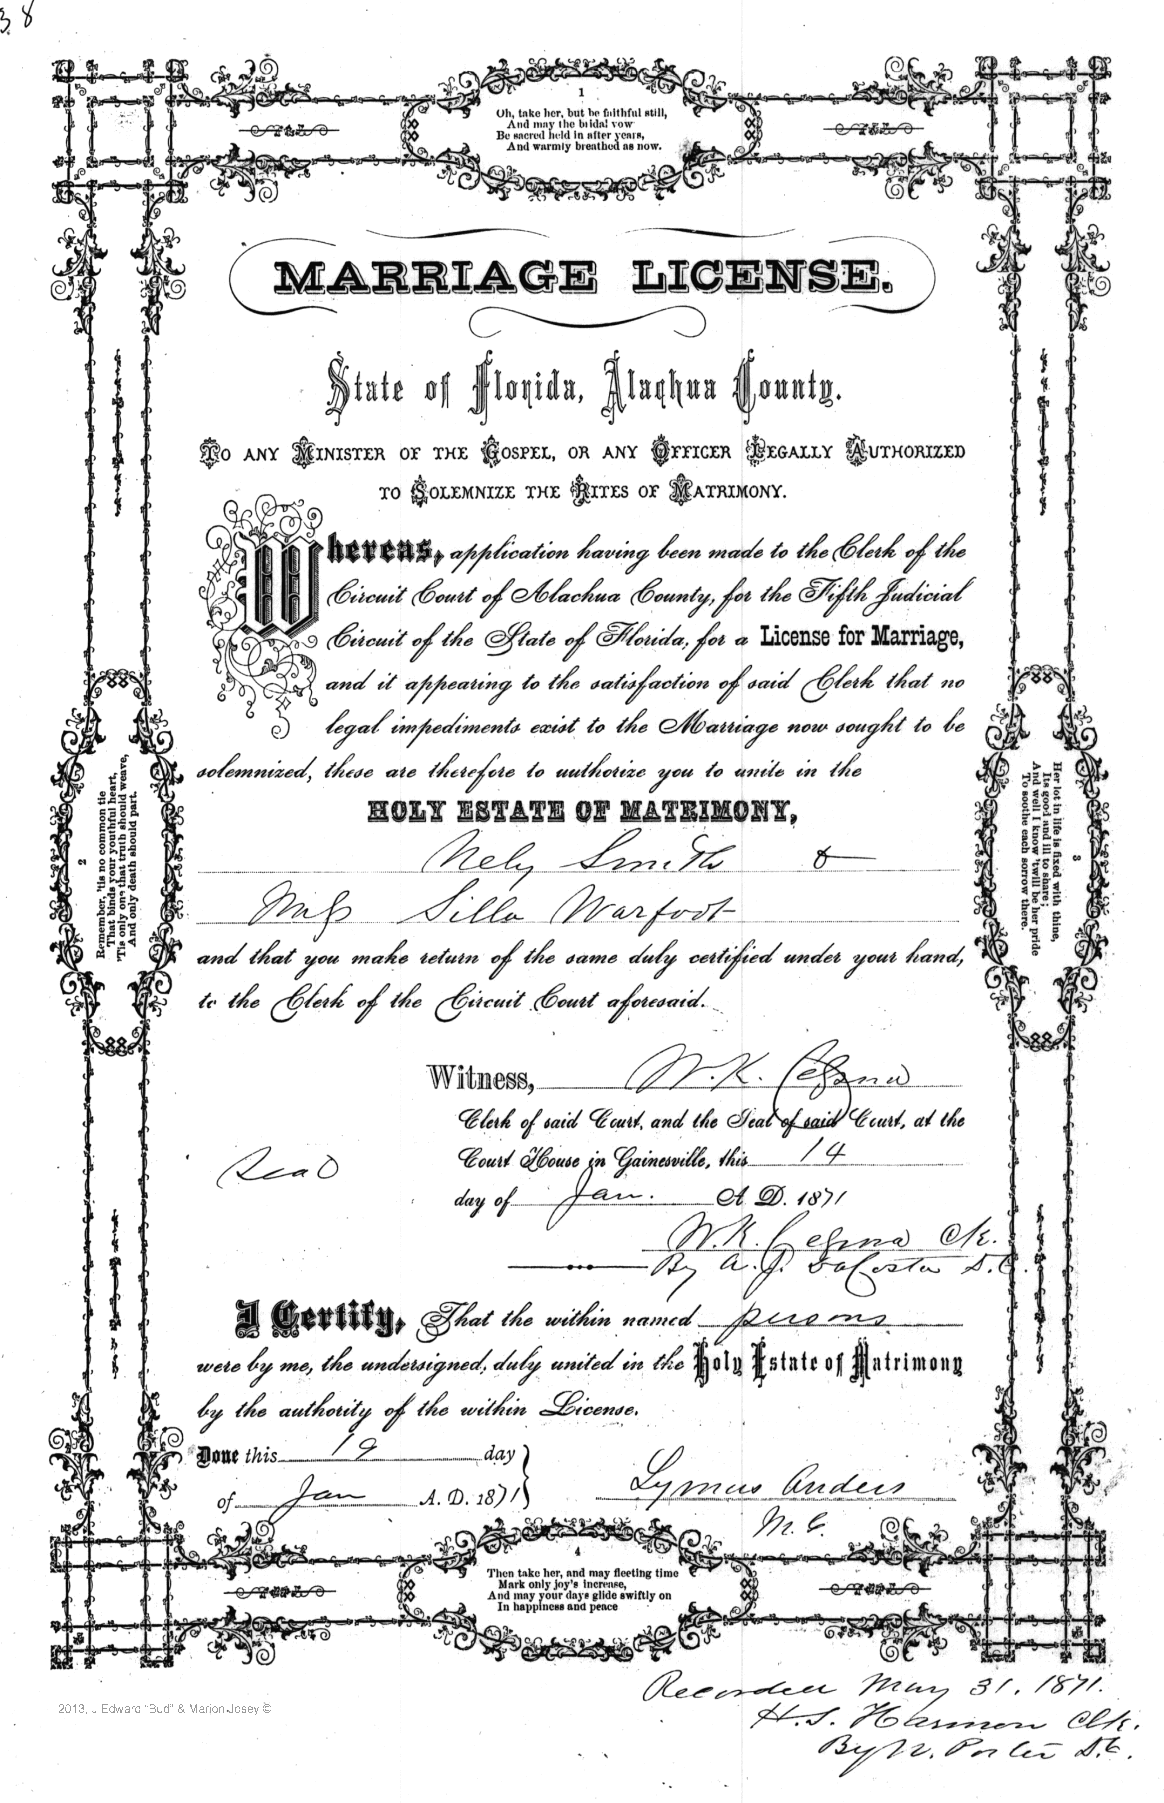 38
1
Oh, take her, but be faithful still,
And may the bridal vow
Be sacred held in after years,
And warmly breathed as now.
MARRIAGE LICENSE.
State of Florida, Alachua County.
TO ANY MINISTER OF THE GOSPEL, OR ANY OFFICER LEGALLY AUTHORIZED
TO SOLEMNIZE THE RITES OF MATRIMONY.
Whereas, application having been made to the Clerk of the
Circuit Court of Alachua County, for the Fifth Judicial
Circuit of the State of Florida, for a License for Marriage,
and it appearing to the satisfaction of said Clerk that no
legal impediments exist to the Marriage now sought to be
solemnized, these are therefore to authorize you to unite in the
HOLY ESTATE OF MATRIMONY,
Nely Smith &
Miss Silla Warfoot
and that you make return of the same duly certified under your hand,
to the Clerk of the Circuit Court aforesaid.
2
Remember, 'tis no common tie
That binds your youthful heart,
'Tis only one that truth should weave,
And only death should part.
3
Her lot in life is fixed with thine,
Its good and ill to share;
And well I know 'twill be her pride
To soothe each sorrow there.
Witness, W. K. Cessna
Clerk of said Court, and the Seal of said Court, at the
Court House in Gainesville, this 14
Seal
day of Jan. A. D. 1871
W. K. Cessna Clk.
By A. J. DaCosta D.C.
I Certify, That the within named persons
were by me, the undersigned, duly united in the Holy Estate of Matrimony
by the authority of the within License.
Done this 19 day
of Jan A. D. 1871
Lymus Anders
M. G.
4
Then take her, and may fleeting time
Mark only joy's increase,
And may your days glide swiftly on
In happiness and peace
Recorded May 31, 1871.
H. S. Harmon Clk.
By N. Porter D.C.
2013, J Edward "Bud" & Marion Josey ©